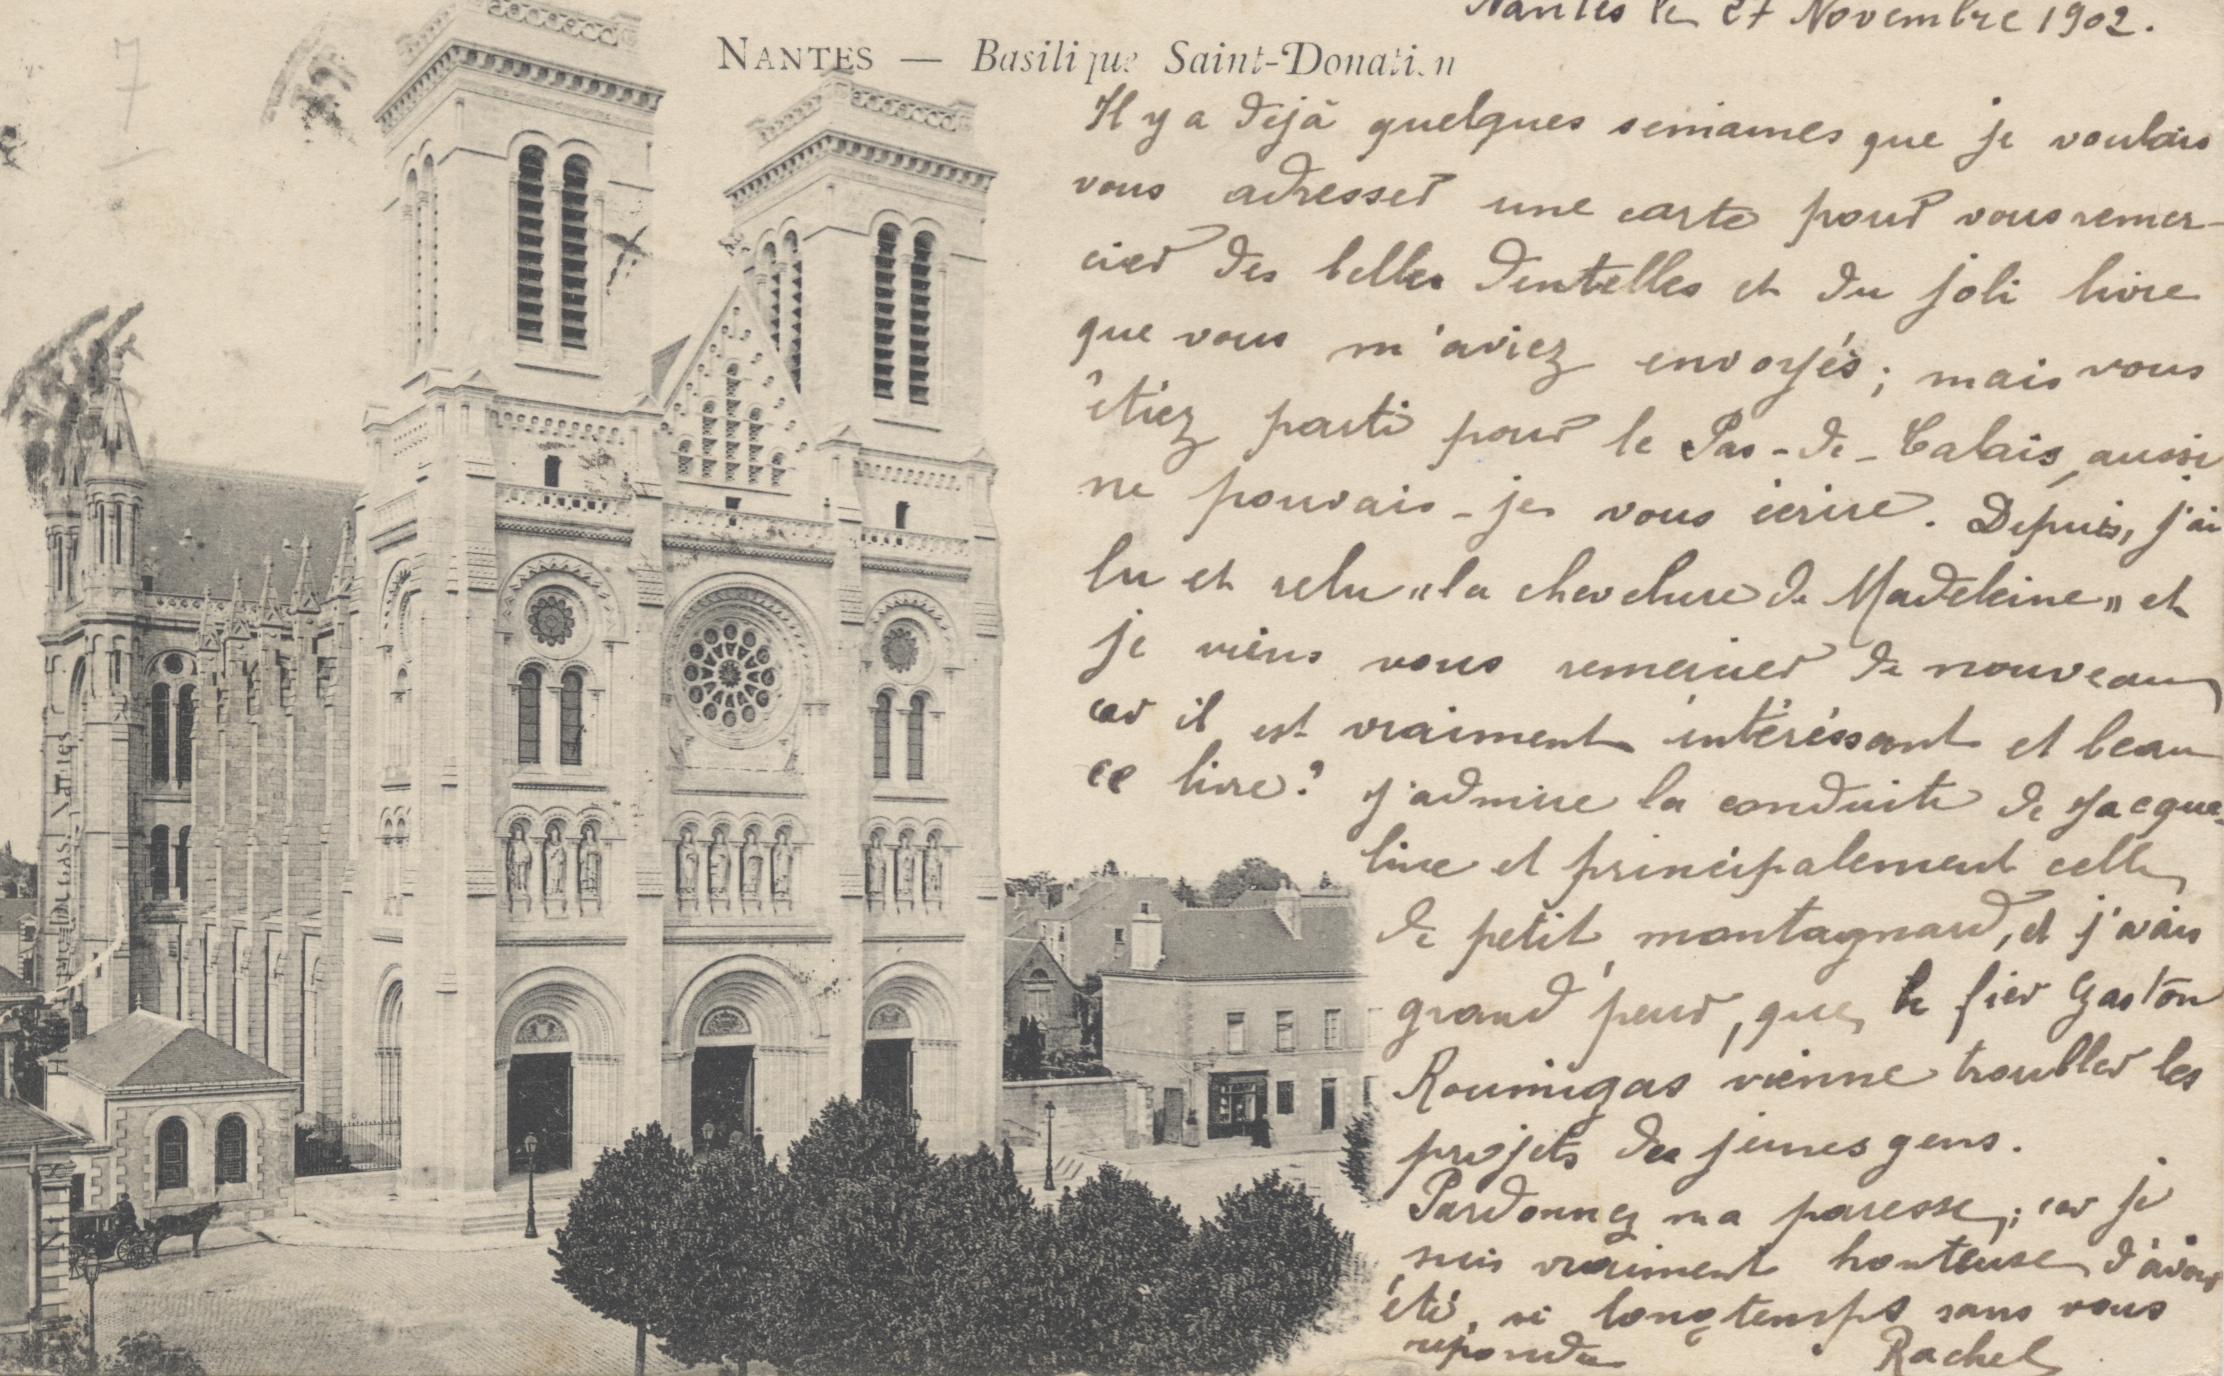 Nantes le 27 Novembre 1902.
NANTES — Basilique Saint-Donatien
Il y a dejà quelques semaines que je voulais
vous adresser une carte pour vous remer-
cier des belles dentelles et du joli livre
que vous m'aviez envoyés ; mais vous
êtiez parti pour le Pas-de-Calais, aussi
ne pouvais-je vous écrire. Depuis, j'ai
lu et relu "la chevelure de Madeleine" et
je viens vous remercier de nouveau
car il est vraiment intéréssant et beau
ce livre ! J'admire la conduite de Jacque-
line et principalement celle
de petit montagnard, et j'avais
grand'peur, que le fier Gaston
Roumigas vienne troubler les
projets des jeunes gens.
Pardonnez ma paresse ; car je
suis vraiment honteuse d'avoir
été si longtemps sans vous
répondre
Rachel